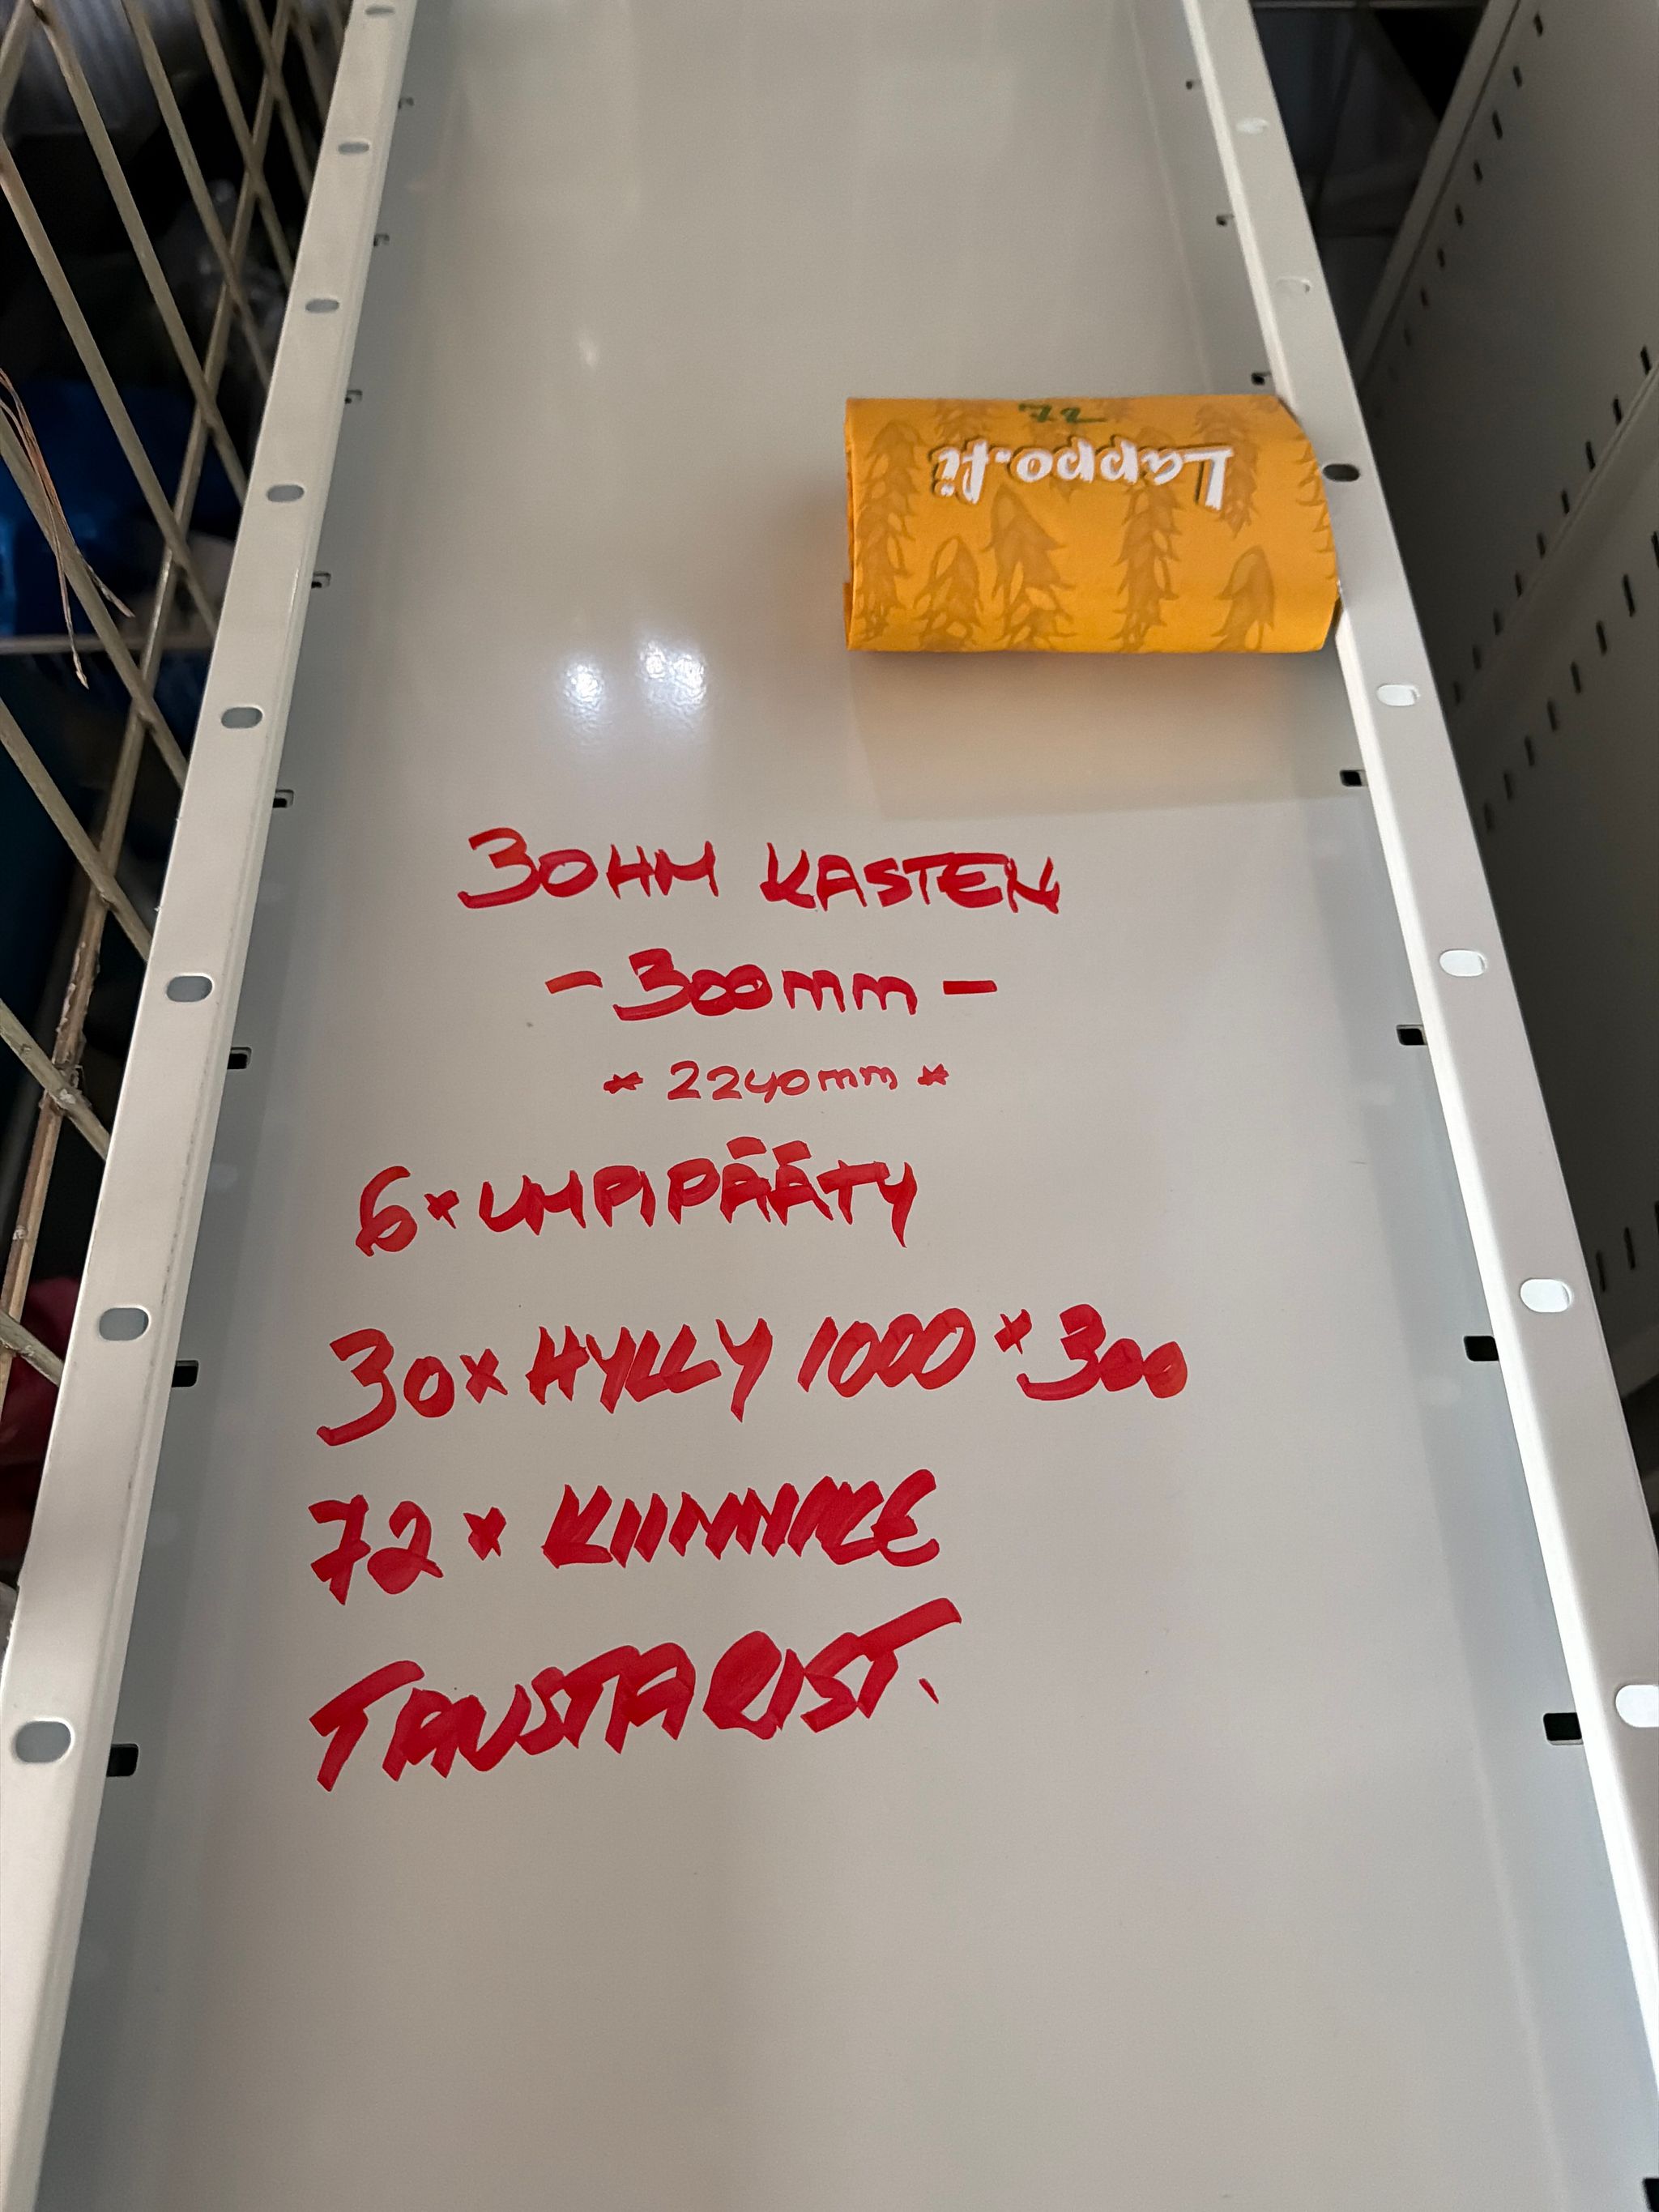 72
Lappo.fi
30HM KASTEN
- 300mm -
* 2240mm *
6x UMPIPÄÄTY
30x HYLLY 1000 x 300
72 x KIINNIKE
TAUSTARIST.